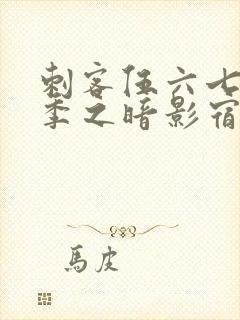 刺客伍六七
季之暗影宿
馬皮